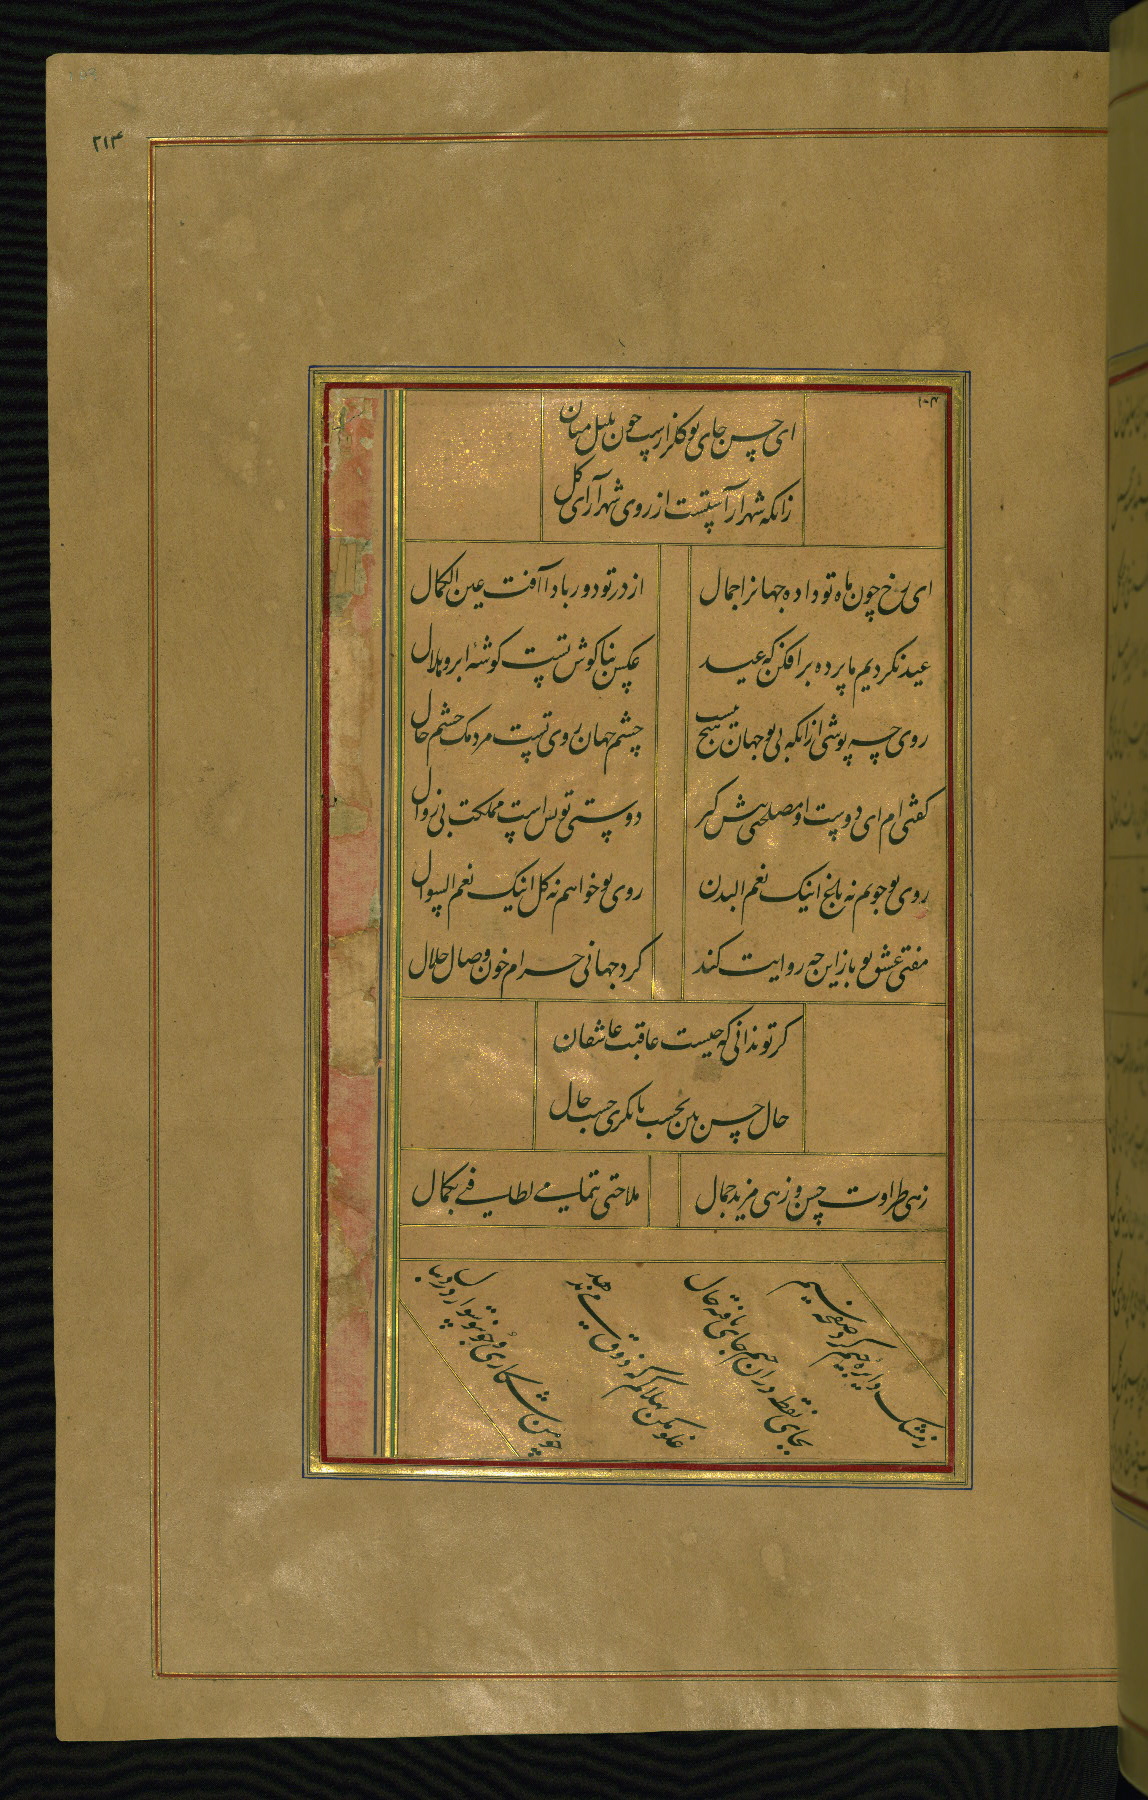 ۲۱۴
۱۰۴
ای حسن جای تو گلزارست چون بلبل منان
زانکه شهر آراستست از روی شهرآرای گل
ای رخ چون ماه تو داده جهانرا جمال
از در تو دور بادا آفت عین الکمال
عید نکردیم ما پرده برافکن که عید
عکس بناگوش تست گوشهٔ ابرو هلال
روی چه پوشی ازانکه بی تو جهان هیچ نیست
چشم جهان روی تست مردمک چشم خال
گفتی ام ای دوست رو مصلحتی پیش گیر
دوستی تو بس است مملکت بی زوال
روی تو جویم نه باغ اینک نعم البدن
روی تو خواهم نه گل اینک نعم السوال
مفتی عشق تو باز این چه روایت کند
کرد جهانی حرام خون و صال حلال
گر تو ندانی که چیست عاقبت عاشقان
حال حسن بین بحسب تا نگری حسب حال
زهی طراوت حسن و زهی مزید جمال
ملاحتی بتمامی لطایفی بکمال
ز مشک دایره جیم کرد صفحه سیم
بجای نقطه در ان جیم جای یافته خال
غلو مکن بهلاکم که ذوق می ندهد
چو من شکاری و چون تو سوار در دنبال